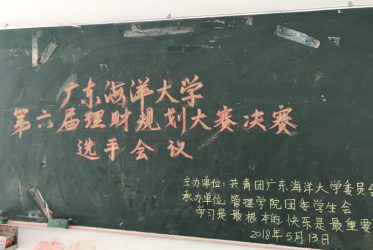 广东海洋大学
第六届理财规划大赛决赛
选手会议
主办单位:共青团广东海洋大学委员会
承办单位:管理学院团委学生会
学习是最根本的,快乐是最重要
2018年5月13日